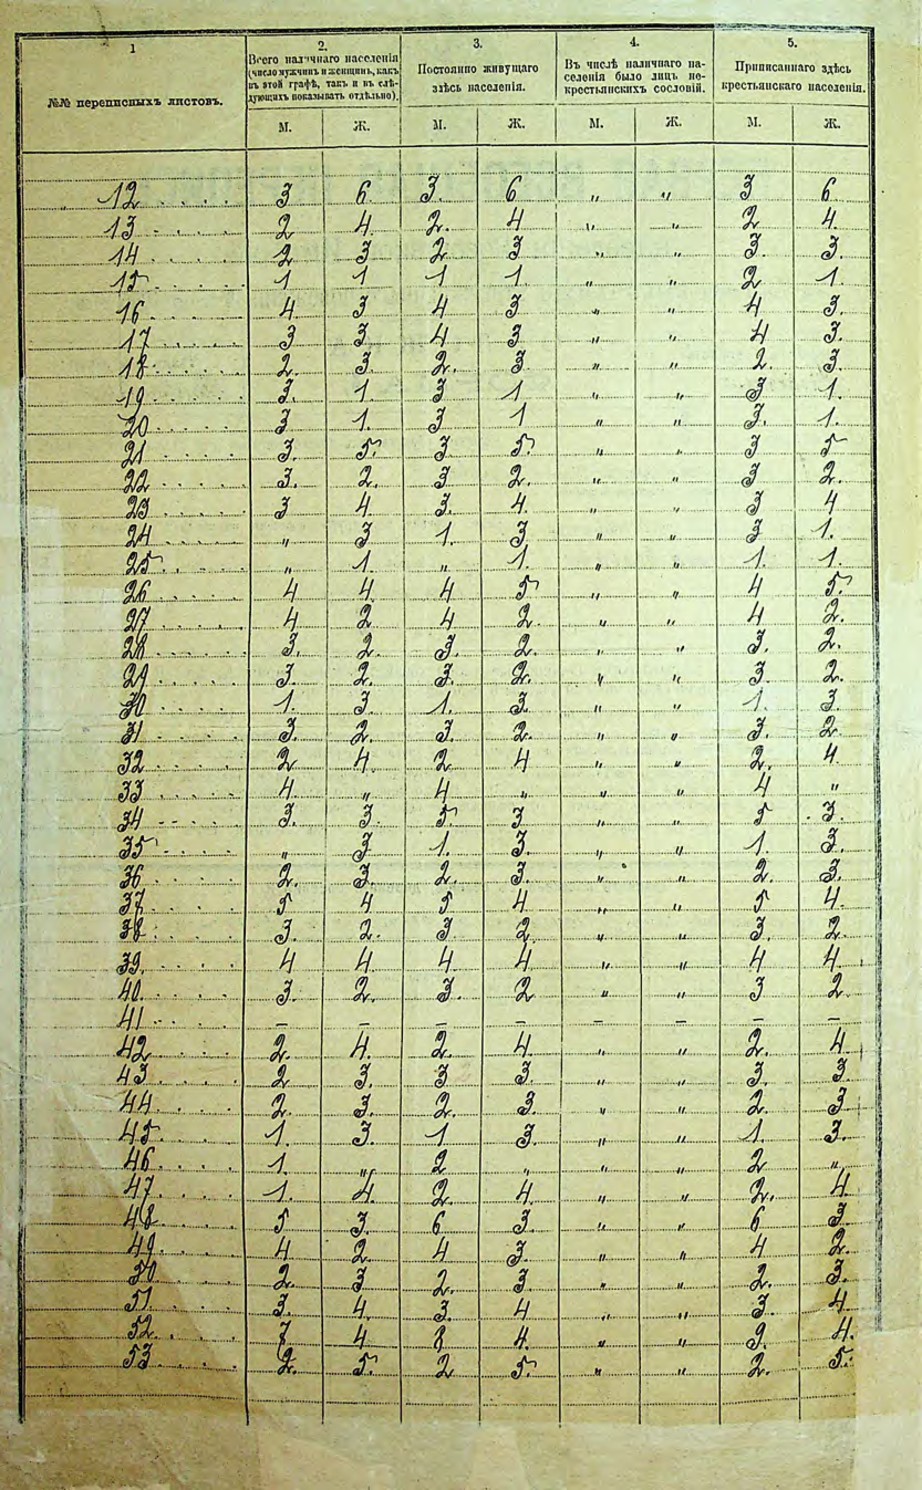 1 2. 3. 4. 5.
№№ переписныхъ листовъ. Всего наличнаго населенія (число мужчинъ и женщинъ, какъ въ этой графѣ, такъ и въ слѣдующихъ показывать отдѣльно). Постоянно живущаго здѣсь населенія. Въ числѣ наличнаго населенія было лицъ некрестьянскихъ сословій. Приписаннаго здѣсь крестьянскаго населенія.
М. Ж. М. Ж. М. Ж. М. Ж.
12 . . . . 3 6. 3. 6 „ „ 3 6
13 . . . . 2 4. 2. 4 „ „ 2 4.
14 . . . . 2 3 2 3 „ „ 3. 3.
15 . . . . 1 1 1 1. „ „ 2 1.
16 . . . . 4. 3 4 3 „ „ 4 3.
17 . . . . 3 3. 4 3 „ „ 4 3.
18 . . . . 2. 3. 2. 3 „ „ 2. 3.
19 . . . . 3. 1. 3 1 „ „ 3 1.
20 . . . . 3 1. 3 1 „ „ 3. 1.
21 . . . . 3. 5. 3 5. „ „ 3 5
22 . . . . 3. 2. 3 2. „ „ 3 2.
23 . . . . 3 4. 3. 4. „ „ 3 4
24 . . . . „ 3 1. 3 „ „ 3 1.
25 . . . . „ 1. „ 1. „ „ 1. 1.
26 . . . . 4 4. 4 5 „ „ 4 5.
27 . . . . 4 2 4 2. „ „ 4 2.
28 . . . . 3. 2. 3. 2. „ „ 3. 2.
29 . . . . 3. 2. 3. 2. „ „ 3 2.
30 . . . . 1. 3 1. 3. „ „ 1. 3.
31 . . . . 3. 2. 3. 2. „ „ 3. 2
32 . . . . 2 4. 2 4 „ „ 2. 4.
33 . . . . 4. „ 4 „ „ „ 4 „
34 . . . . 3. 3. 5. 3 „ „ 5 3.
35 . . . . „ 3 1. 3. „ „ 1. 3.
36 . . . . 2. 3. 2. 3. „ „ 2. 3.
37 . . . . 5 4 5 4 „ „ 5 4.
38 . . . . 3. 2. 3 2 „ „ 3. 2.
39. . . . . 4 4. 4. 4 „ „ 4 4.
40. . . . . 3. 2. 3. 2 „ „ 3 2
41 . . . . – – – – – – – –
42 . . . . 2. 4. 2. 4. „ „ 2. 4
43 . . . . 2 3. 3 3. „ „ 3. 3.
44 . . . . 2. 3. 2. 3. „ „ 2. 3
45 . . . . 1. 3. 1 3. „ „ 1. 3.
46 . . . . 1. „ 2 „ „ „ 2 „
47 . . . . 1. 4. 2. 4. „ „ 2. 4.
48 . . . . 5 3. 6 3. „ „ 6 3
49 . . . . 4 2 4 3. „ „ 4 2.
50 . . . . 2. 3 2. 3. „ „ 2. 3.
51 . . . . 3. 4. 3. 4 „ „ 3. 4
52 . . . . 7 4 8 4. „ „ 9. 4.
53 . . . . 2. 5. 2 5. „ „ 2. 5.